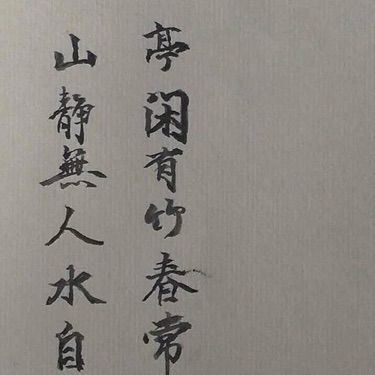 亭闲有竹春常
山静無人水自